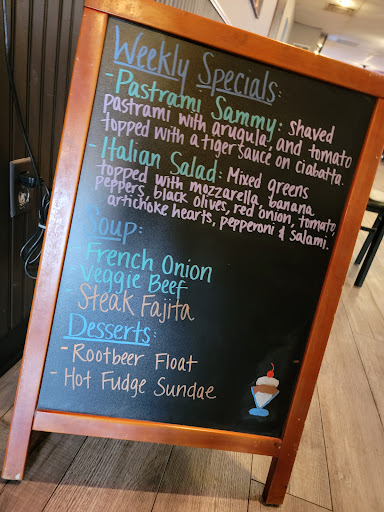 Weekly Specials:
- Pastrami Sammy: Shaved
pastrami with arugula, and tomato
topped with a tiger sauce on ciabatta.
- Italian Salad: Mixed greens
topped with mozzarella, banana
peppers, black olives, red onion, tomato,
artichoke hearts, pepperoni & salami.
Soup:
French Onion
Veggie Beef
Steak Fajita
Desserts:
- Rootbeer Float
- Hot Fudge Sundae